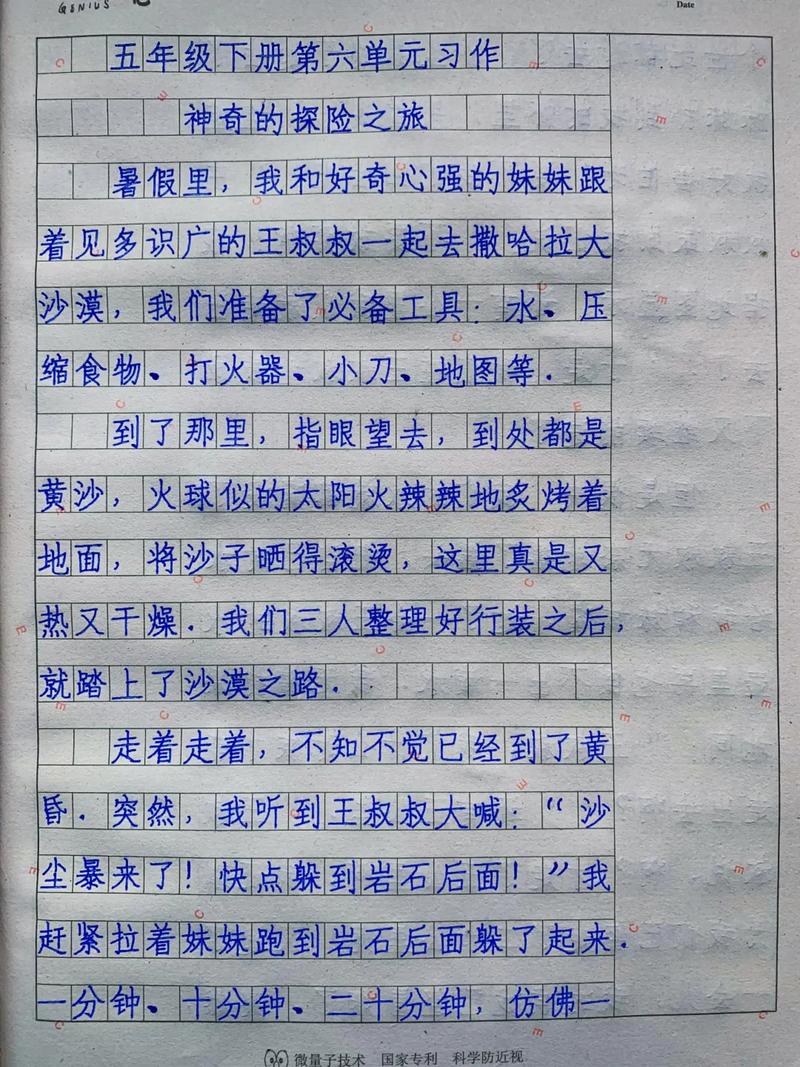 GENIUS
Date
五年级下册第六单元习作
神奇的探险之旅
暑假里，我和好奇心强的妹妹跟
着见多识广的王叔叔一起去撒哈拉大
沙漠，我们准备了必备工具：水、压
缩食物、打火器、小刀、地图等.
到了那里，指眼望去，到处都是
黄沙，火球似的太阳火辣辣地炙烤着
地面，将沙子晒得滚烫，这里真是又
热又干燥.我们三人整理好行装之后，
就踏上了沙漠之路.
走着走着，不知不觉已经到了黄
昏.突然，我听到王叔叔大喊：“沙
尘暴来了！快点躲到岩石后面！”我
赶紧拉着妹妹跑到岩石后面躲了起来.
一分钟、十分钟、二十分钟，仿佛一
微量子技术 国家专利 科学防近视